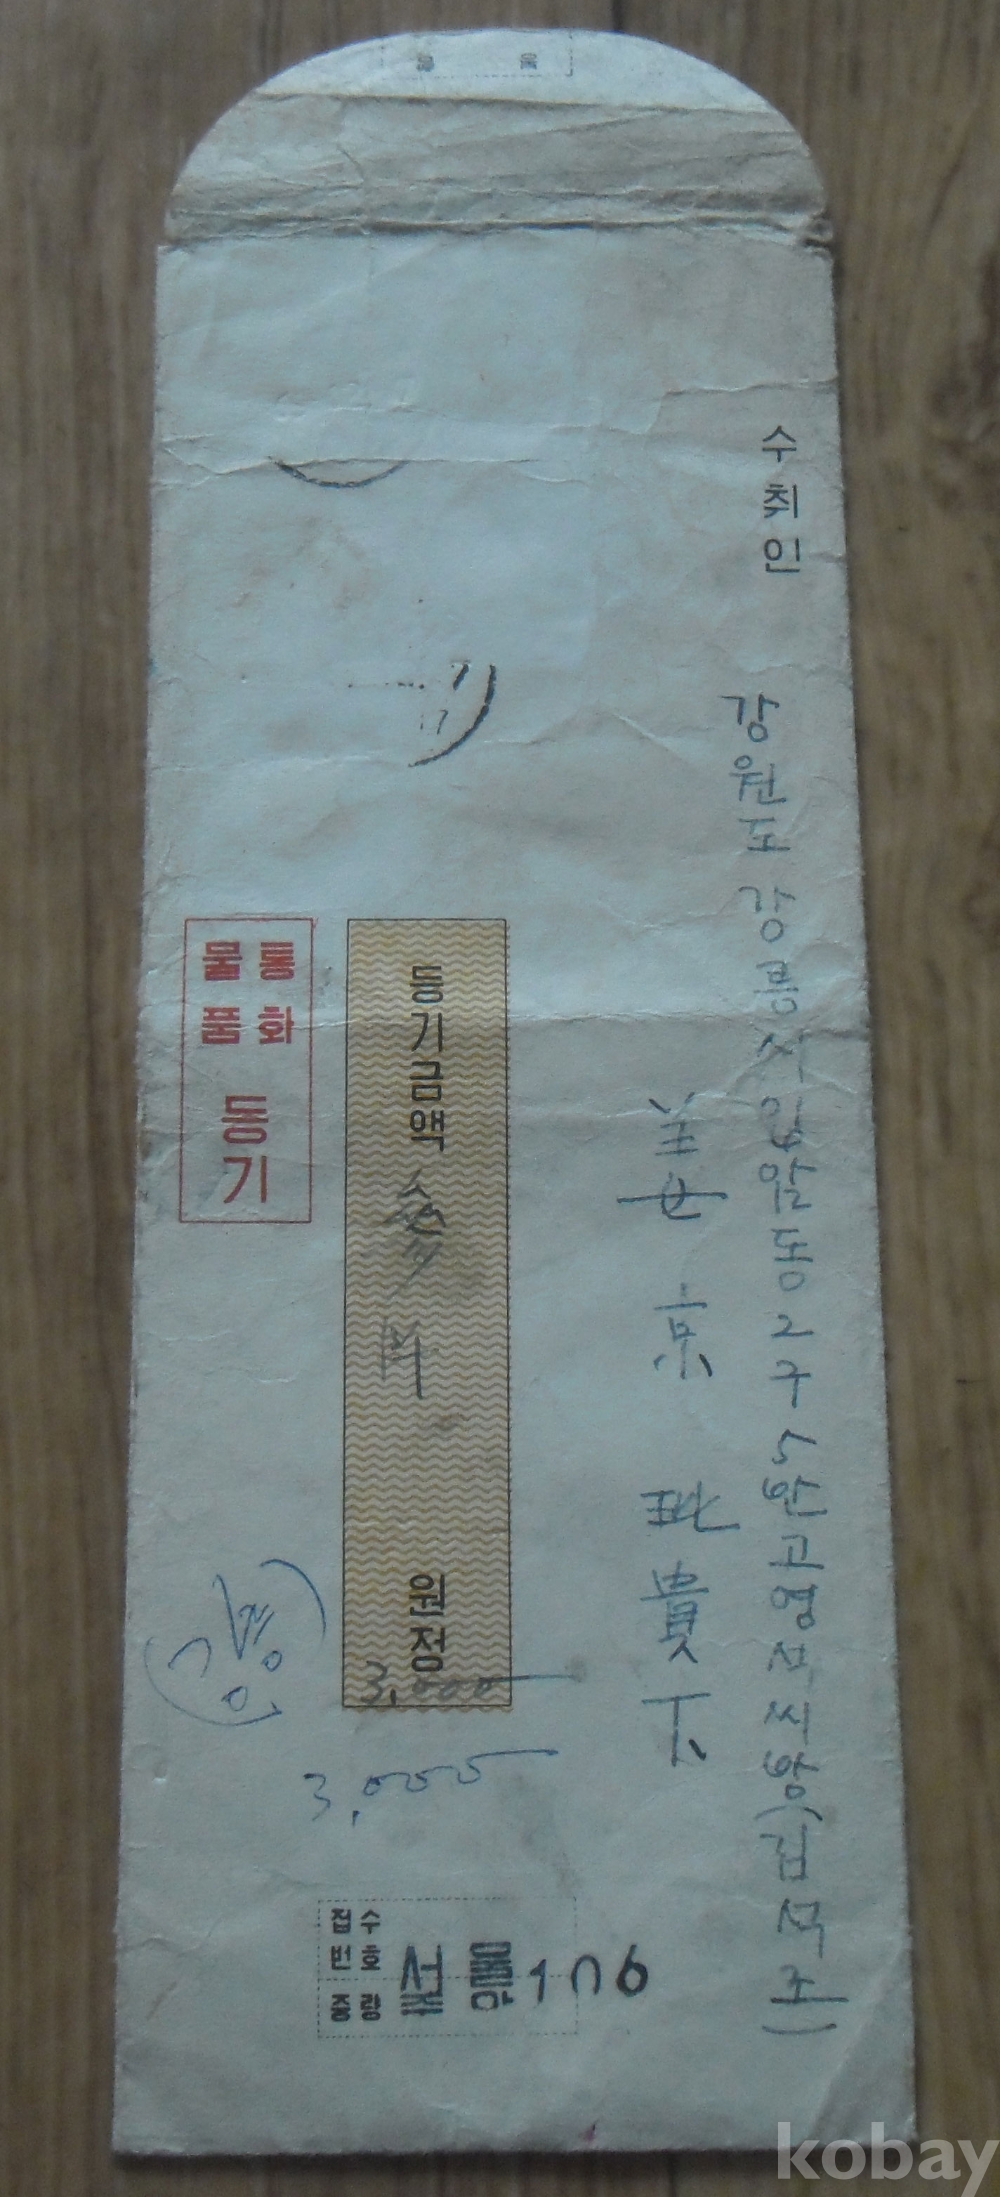 수취인
강원도 강릉시 입암동 2구 5반 고영석씨방(김석조)
姜京玭貴下
등기금액 參阡 원정
3,000
통화
물품
등기
3,000
접수
번호
중량
106
kobay